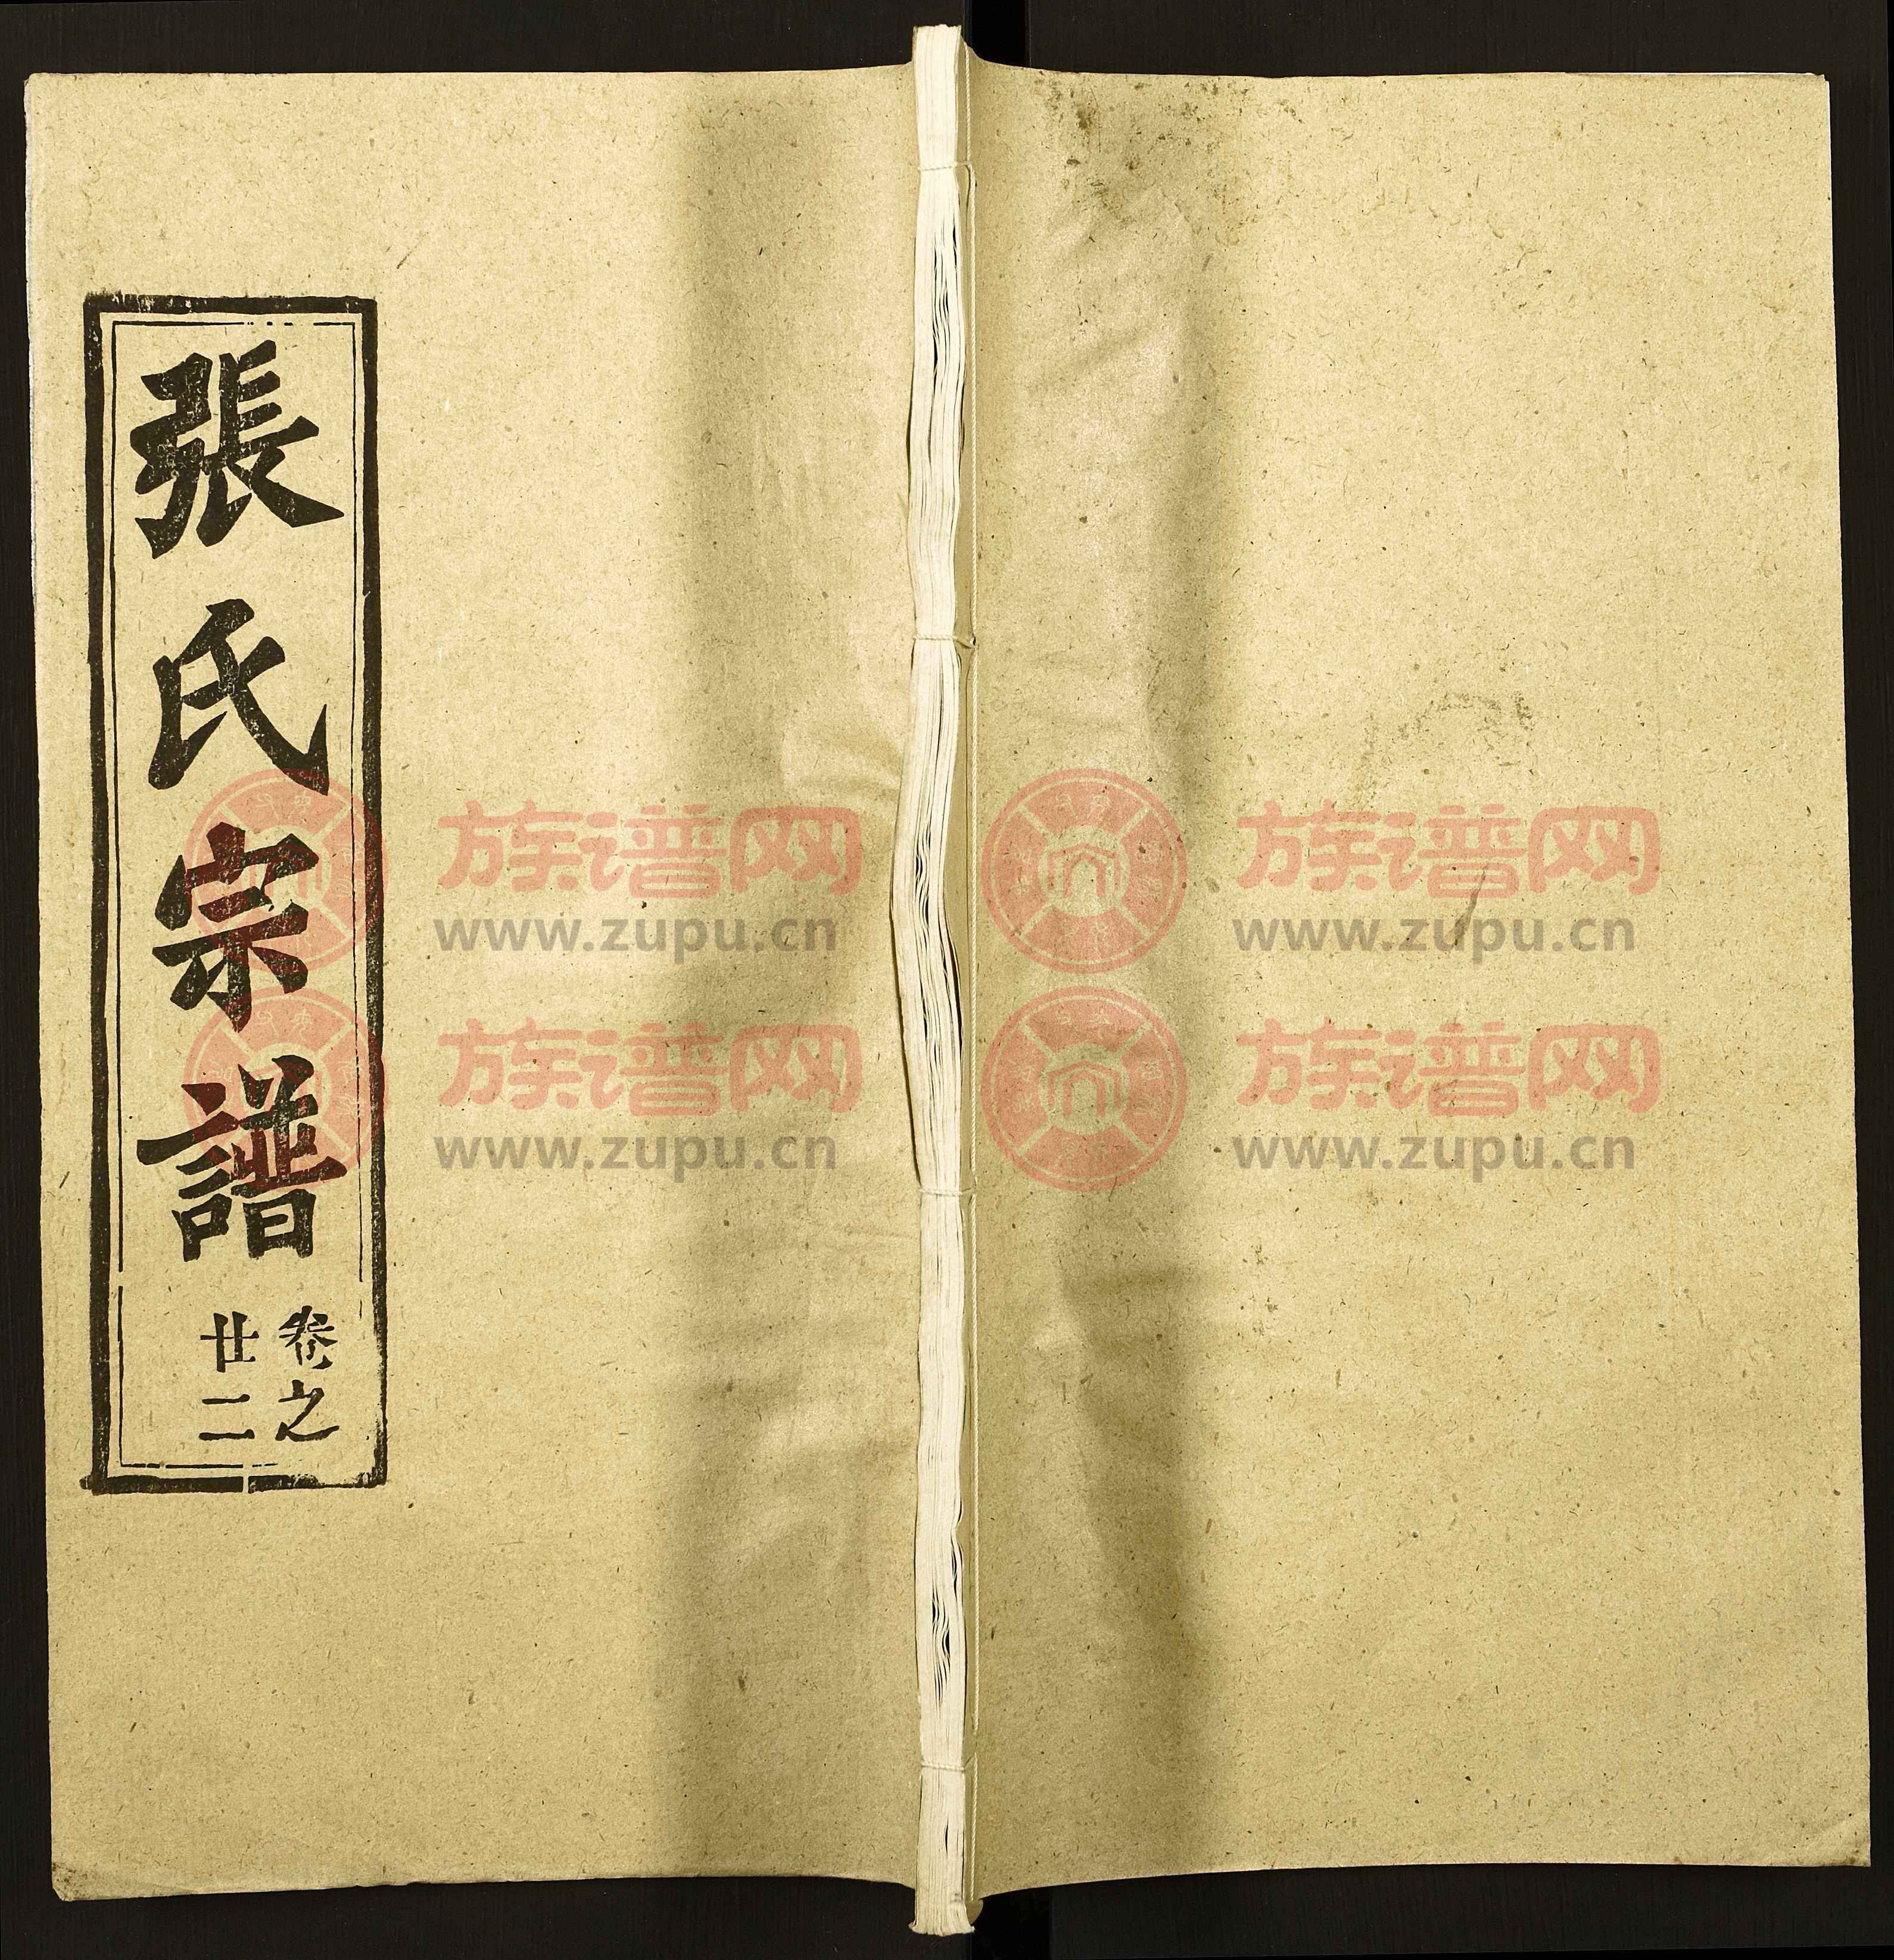 張氏宗譜
卷之
廿二
族谱网
www.zupu.cn
族谱网
www.zupu.cn
族谱网
www.zupu.cn
族谱网
www.zupu.cn